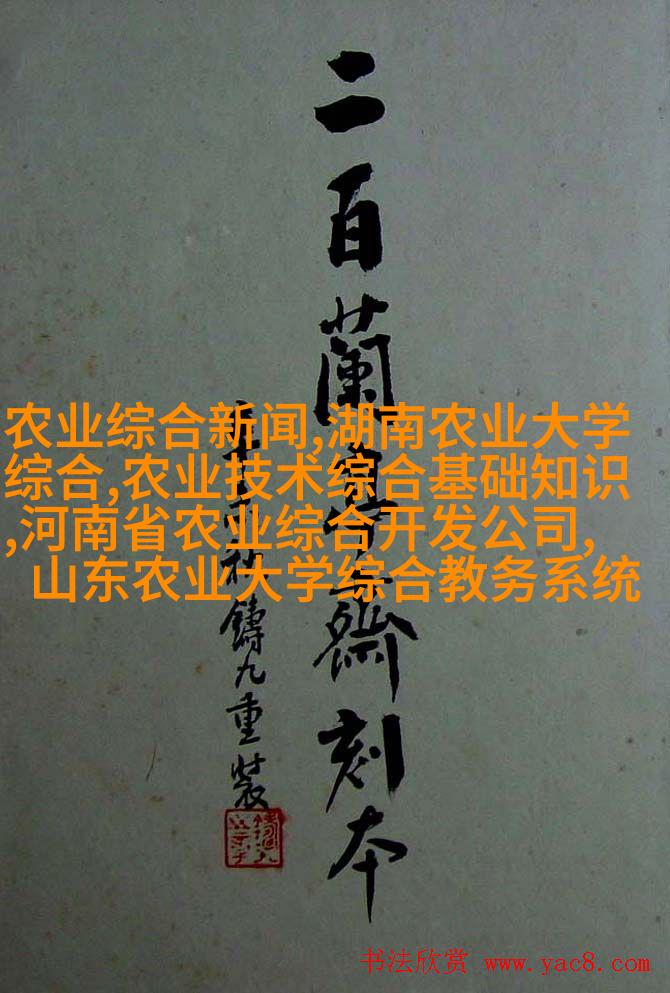 二百蘭亭齋刻本
鑄九重裝
农业综合新闻,湖南农业大学
综合,农业技术综合基础知识
,河南省农业综合开发公司,
山东农业大学综合教务系统
书法欣赏 www.yac8.com